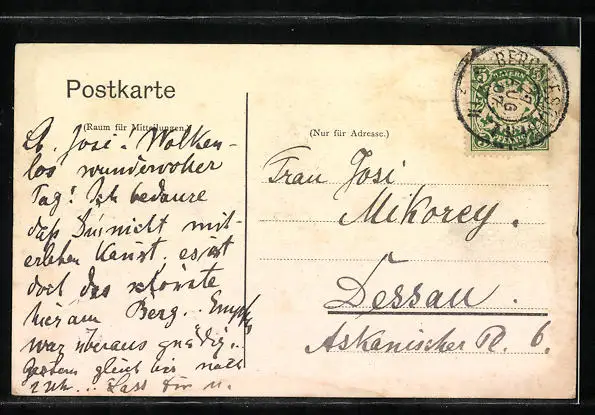 Postkarte
(Raum für Mitteilungen.)
(Nur für Adresse.)
L. Josi! Wolken-
los wundervoller
Tag! Ich bedaure
daß Du nicht mit-
erleben kannst. es ist
doch das schönste
hier am Berg.. Empfg
war überaus gnädig..
gestern gleich bis nach
2 Uhr... Lass Dir u.
Frau Josi
Mikorey.
Dessau.
Askanischer Pl. 6.
5
BAYERN
5
PFENNIG